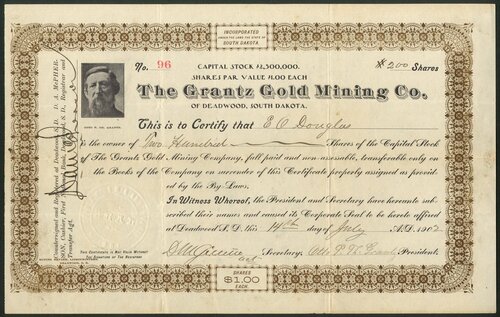 INCORPORATED
UNDER THE LAWS THE STATE OF
SOUTH DAKOTA
No. 96
CAPITAL STOCK $1,500,000.
$ 200 Shares
SHARES PAR VALUE $1.00 EACH
The Grantz Gold Mining Co.
OF DEADWOOD, SOUTH DAKOTA.
OTTO P. TH. GRANTZ.
This is to Certify that E O Douglas
is the owner of Two Hundred Shares of the Capital Stock
of The Grantz Gold Mining Company, full paid and non-assessable, transferable only on
the Books of the Company on surrender of this Certificate properly assigned as provi-
ded by the By-Laws.
In Witness Whereof, the President and Secretary have hereunto sub-
scribed their names and caused its Corporate Seal to be hereto affixed
at Deadwood S.D. this 14th day of July A.D. 1902
Secretary. Otto P. Th. Grantz President.
This Certificate is Not Valid Without
the Signature of the Registrar
Countersigned and Registered at Deadwood, S. D. D. A. McPHER-
SON, Cashier, First National Bank, Deadwood, S. D., Registrar and
Transfer Agt.
SHARES
$1.00
EACH